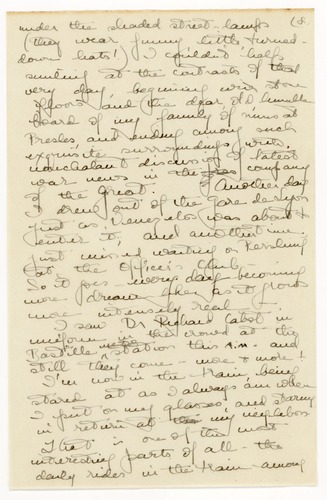 under the shaded street-lamps (8.
(they wear funny little turned-
down hats!) I couldn't help
smiling at the contrasts of that
very day, beginning with stone
floors and the dear old humble
board of my family of nuns at
Presles, and ending among such
exquisite surroundings, with
nonchalant discussion of latest
war news in the company
of the great! Another day
I drew out of the Gare de Lyon
just as Venezelos was about to
enter it; and another time
just missed waiting on Pershing
at the Officer's Club.
So it goes - every day becoming
more dream-like as it grows
more intensely real -
I saw Dr Richard Cabot in
uniform in the crowd at the
Bastille station this a.m. and
still they come - more & more!
I'm now in the train, being
stared at as I always am when
I put on my glasses, and staring
in return at my neighbors
That is one of the most
interesting parts of all - the
daily rides in the train - among